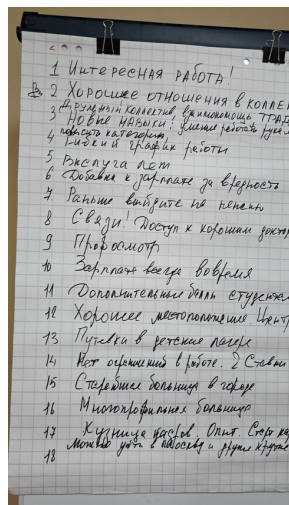 1 Интересная работа!
2 Хорошие отношения в коллек
Дружный коллектив взаимопомощь трад
3 Новые навыки! умение работать рукам
повысить категорию
4 Гибкий график работы
5 Выслуга лет
6 Добавка к зарплате за вредность
7. Раньше выйдите на пенсию
8 Связи! Доступ к хорошим доктор
9 Профосмотр
10 Зарплата всегда вовремя
11 Дополнительные баллы студентам
12 Хорошее местоположение Центр
13 Путевки в детские лагеря
14 Нет ограничений в работе. 2 Ставки
15 Старейшая больница в городе
16 Многопрофильная больница
17 Кузница кадров. Опыт. Старт
Можно уйти в и другие крутые
18